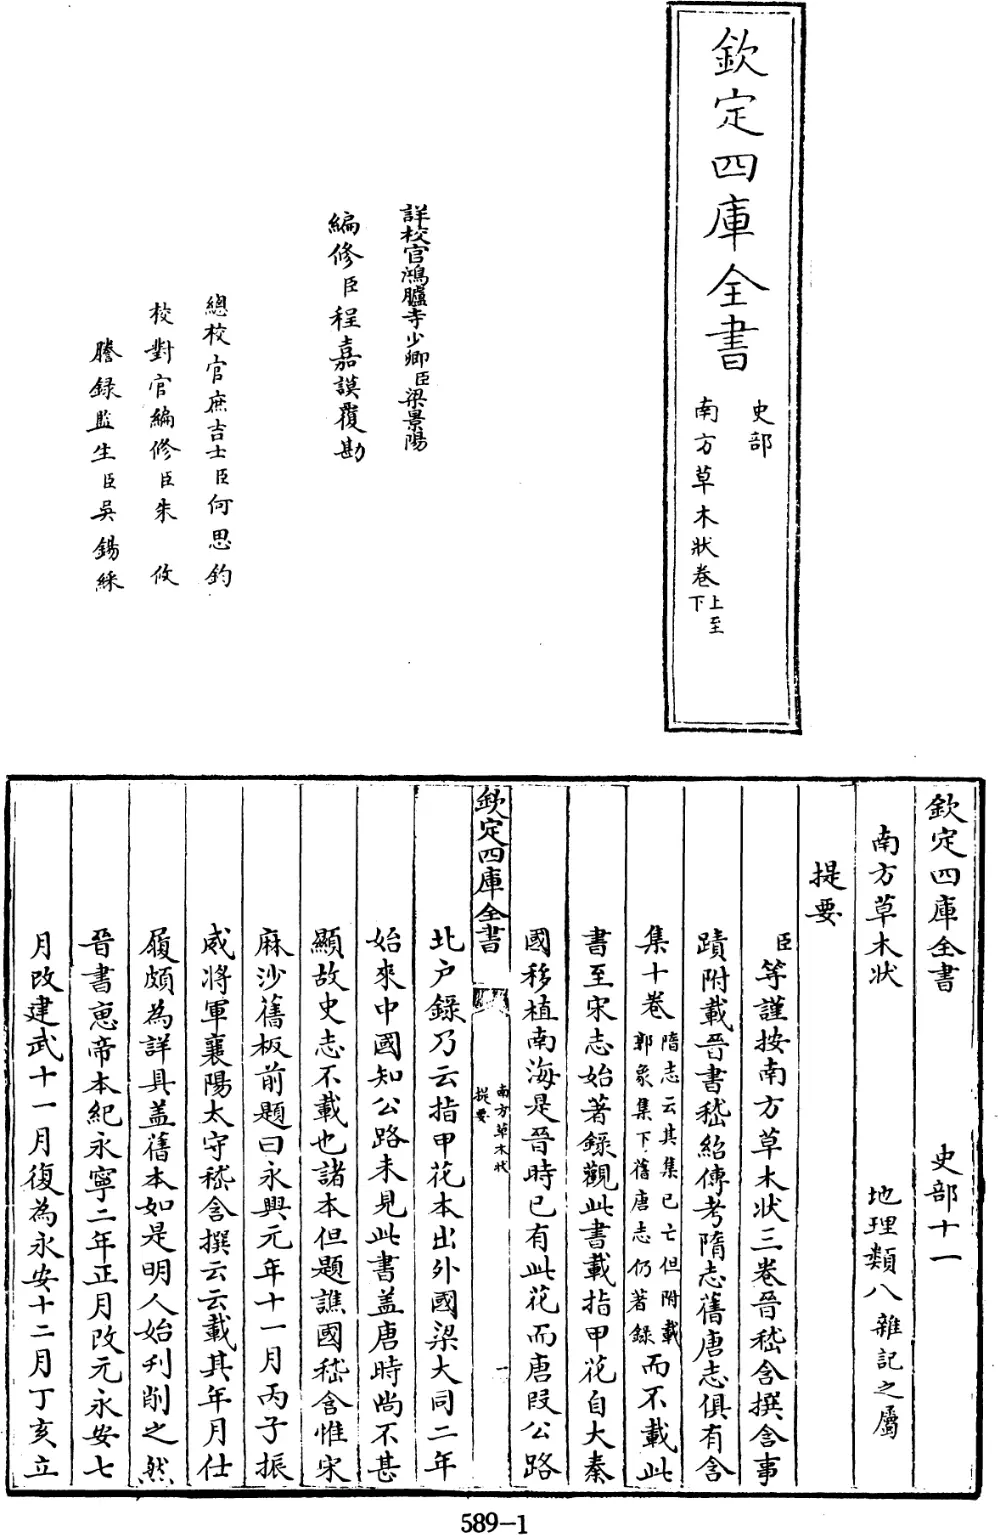 欽定四庫全書
史部
南方草木狀卷上至下
詳校官鴻臚寺少卿臣梁景陽
編修臣程嘉謨覆勘
總校官庶吉士臣何思鈞
校對官編修臣朱攸
謄錄監生臣吳錫綵
欽定四庫全書 史部十一
南方草木狀 地理類八雜記之屬
提要
臣等謹按南方草木狀三巻晉嵇含撰含事
蹟附載晉書嵇紹傳考隋志舊唐志俱有含
集十卷隋志云其集已亡但附載郭象集下舊唐志仍著録而不載此
書至宋志始著録觀此書載指甲花自大秦
國移植南海是晉時已有此花而唐段公路
欽定四庫全書 南方草木狀 提要 一
北户録乃云指甲花本出外國梁大同二年
始來中國知公路未見此書盖唐時尚不甚
顯故史志不載也諸本但題譙國嵇含惟宋
麻沙舊板前題曰永興元年十一月丙子振
威將軍襄陽太守嵇含撰云云載其年月仕
履頗為詳具盖舊本如是明人始刋削之然
晉書惠帝本紀永寧二年正月改元永安七
月改建武十一月復為永安十二月丁亥立
589-1